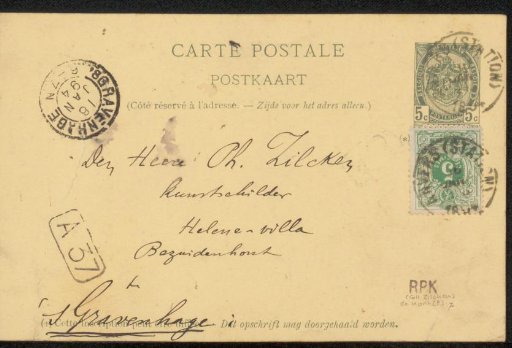 CARTE POSTALE
POSTKAART
(Côté réservé à l'adresse. — Zijde voor het adres alleen.)
5c 5c
'SGRAVENHAGE
18 JAN
94
(STATION)
ANVERS (STATION)
5
Den Heer Ph. Zilcken
Kunstschilder
Helene-villa
Bezuidenhout
A 37
te
's Gravenhage
Dit opschrift mag doorgehaald worden.
RPK